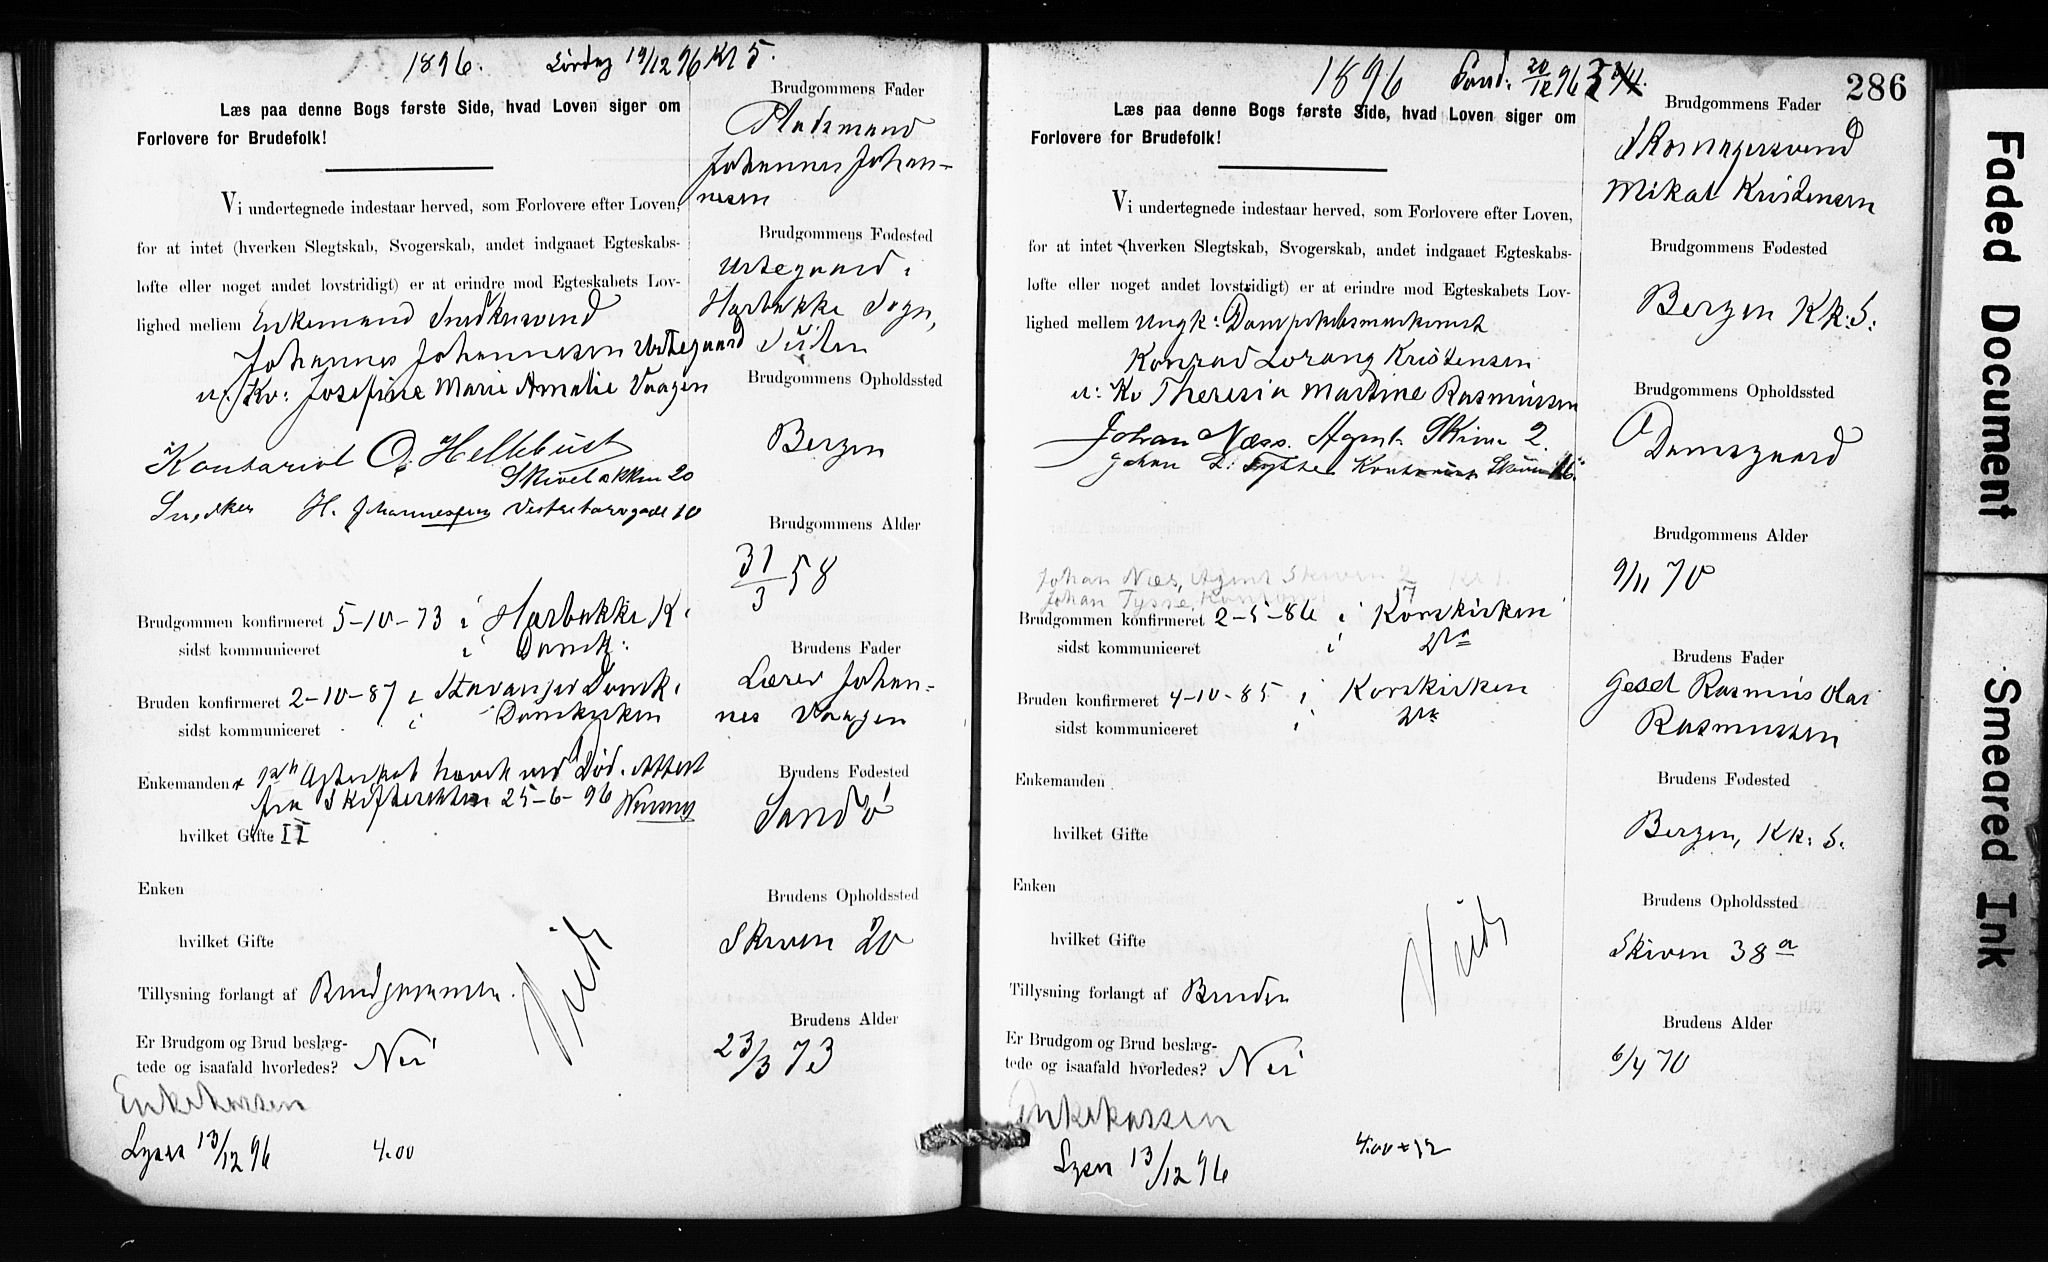 1896. Lørdag 19/12 96 Kl 5.
Læs paa denne Bogs første Side, hvad Loven siger om
Forlovere for Brudefolk!
Vi undertegnede indestaar herved, som Forlovere efter Loven,
for at intet (hverken Slegtskab, Svogerskab, andet indgaaet Egteskabs-
løfte eller noget andet lovstridigt) er at erindre mod Egteskabets Lov-
lighed mellem Enkemand Snedkersvend
Johannes Johannessen Urtegaard
u: Kv: Josefine Marie Amalie Vaagen
Kontorist O. Hellebust
Skivebakken 20
Snedker H. Johannessen Vestretorvgade 10
Brudgommen konfirmeret 5-10-73 i Harbakke K.
sidst kommuniceret i Domk:
Bruden konfirmeret 2-10-87 i Stavanger Domk.
sidst kommuniceret i Domkirken
Enkemanden Død. Attest
fra Skifteretten 25-6-96
hvilket Gifte II
Enken
hvilket Gifte
Tillysning forlangt af Brudgommen.
Er Brudgom og Brud beslæg-
tede og isaafald hvorledes? Nei
Viede
Enkekassen
Lyses 13/12 96 4.00
Brudgommens Fader
Pladsmand
Johannes Johan-
nesen
Brudgommens Fødested
Urtegaard i
Harbakke Sogn,
Brudgommens Opholdssted
Bergen
Brudgommens Alder
31/3 58
Brudens Fader
Lærer Johan-
nes Vaagen
Brudens Fødested
Sandø
Brudens Opholdssted
Skiven 20
Brudens Alder
23/3 73
1896 Sønd: 20/12 96
286
Læs paa denne Bogs første Side, hvad Loven siger om
Forlovere for Brudefolk!
Vi undertegnede indestaar herved, som Forlovere efter Loven,
for at intet (hverken Slegtskab, Svogerskab, andet indgaaet Egteskabs-
løfte eller noget andet lovstridigt) er at erindre mod Egteskabets Lov-
lighed mellem Ungk: Dampskibsmaskinist
Konrad Lorang Kristensen
u: Kv Theresia Martine Rasmussen
Johan Næss. Agent Skiven 2.
Johan L: Tysse Kontorist Skiven 16.
Johan Næs, Agent Skiven 2 Kl 1.
Johan Tysse, Kontorist 17
Brudgommen konfirmeret 2-5-86 i Korskirken
sidst kommuniceret i
Bruden konfirmeret 4-10-85 i Korskirken
sidst kommuniceret i
Enkemanden
hvilket Gifte
Enken
hvilket Gifte
Tillysning forlangt af Bruden
Er Brudgom og Brud beslæg-
tede og isaafald hvorledes? Nei
Viede
Enkekassen
Lyses 13/12 96 4.00 + 12
Brudgommens Fader
Skomagersvend
Mikal Kristensen
Brudgommens Fødested
Bergen Kk: S:
Brudgommens Opholdssted
Damsgaard
Brudgommens Alder
9/11 70
Brudens Fader
Rasmus Olai
Rasmussen
Brudens Fødested
Bergen, Kk: S.
Brudens Opholdssted
Skiven 38 a
Brudens Alder
6/4 70
Faded Document
Smeared Ink